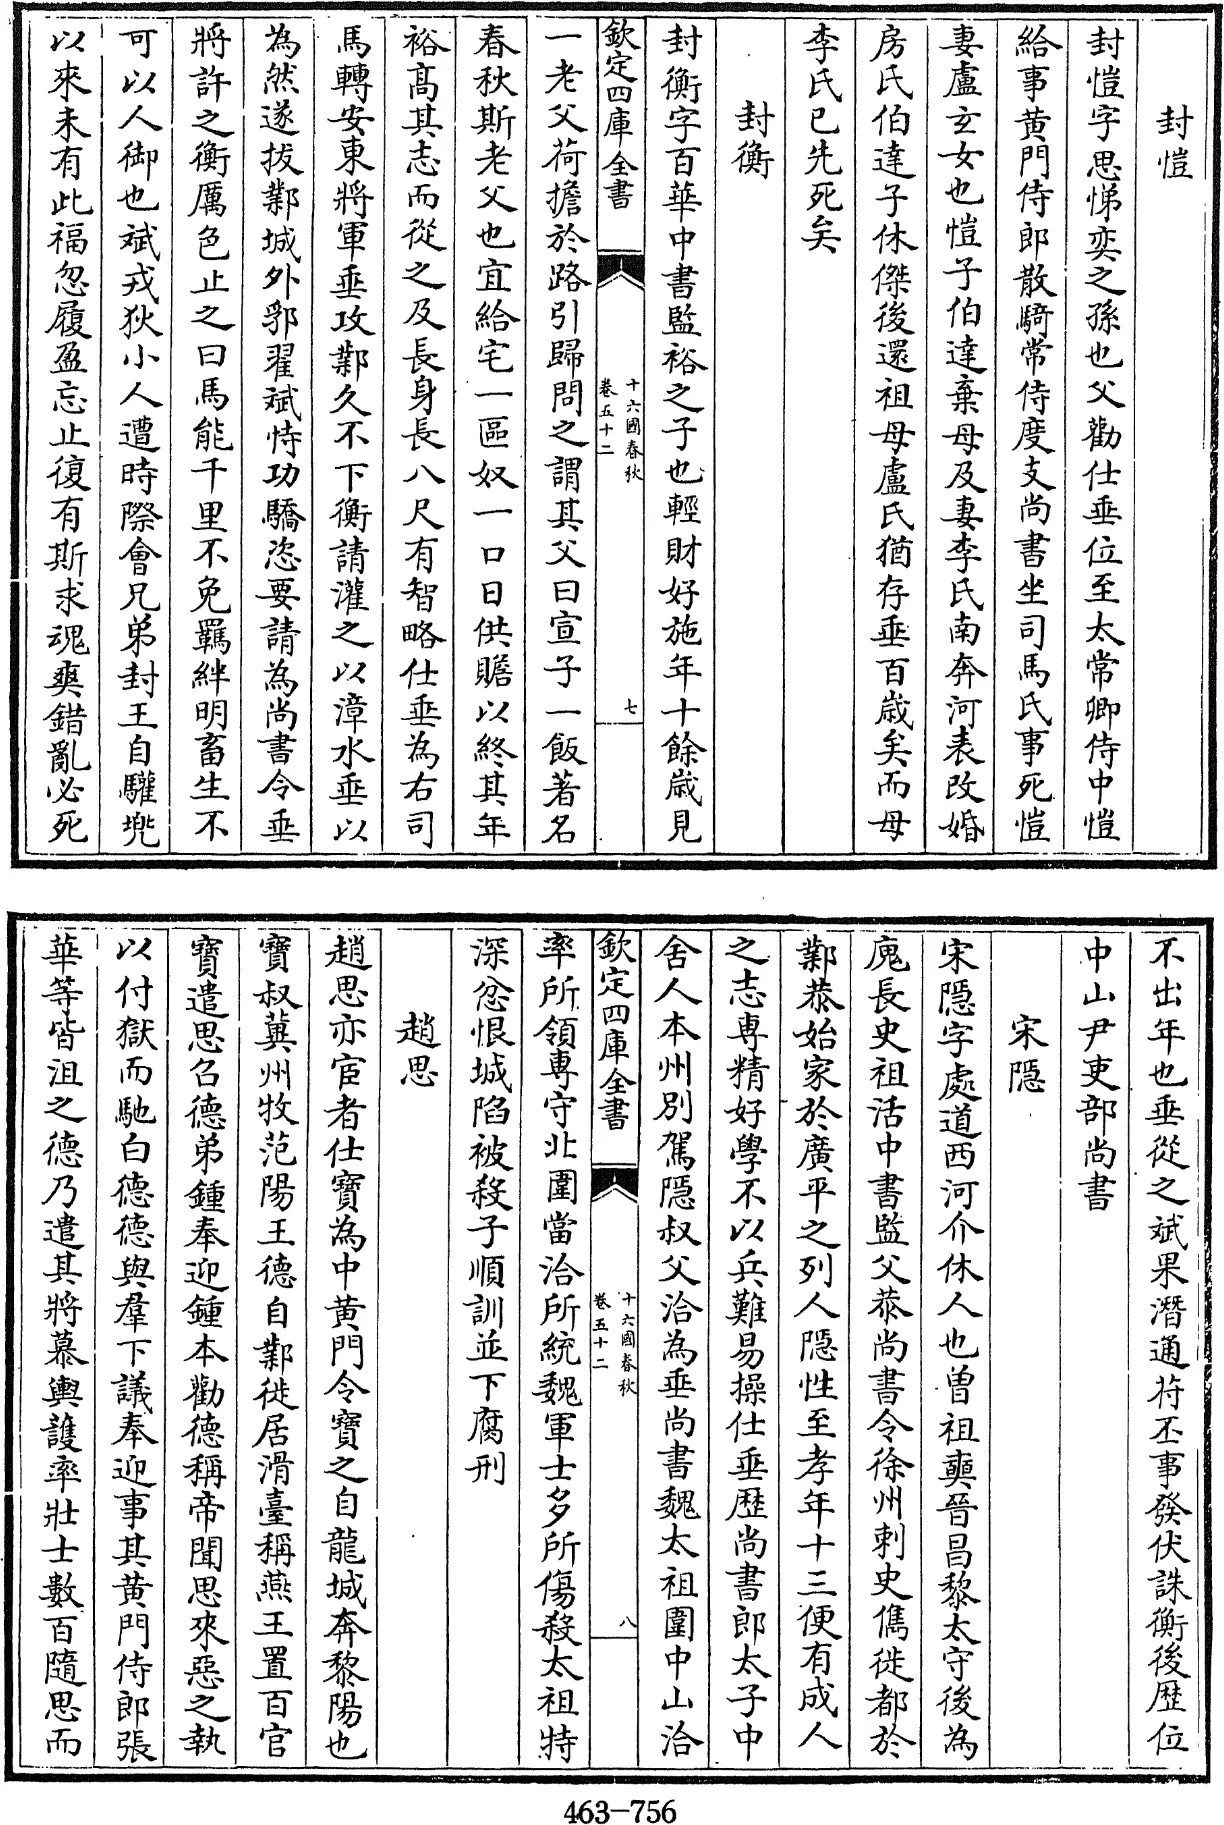 封愷
封愷字思悌奕之孫也父勸仕垂位至太常卿侍中愷
給事黄門侍郎散騎常侍度支尚書坐司馬氏事死愷
妻盧玄女也愷子伯達棄母及妻李氏南奔河表改婚
房氏伯達子休傑後還祖母盧氏猶存垂百歲矣而母
李氏已先死矣
封衡
封衡字百華中書監裕之子也輕財好施年十餘歲見
欽定四庫全書
十六國春秋
卷五十二
七
一老父荷擔於路引歸問之謂其父曰宣子一飯著名
春秋斯老父也宜給宅一區奴一口日供贍以終其年
裕髙其志而從之及長身長八尺有智略仕垂為右司
馬轉安東將軍垂攻鄴久不下衡請灌之以漳水垂以
為然遂拔鄴城外郛翟斌恃功驕恣要請為尚書令垂
將許之衡厲色止之曰馬能千里不免羈絆明畜生不
可以人御也斌戎狄小人遭時際會兄弟封王自驩兠
以來未有此福忽履盈忘止復有斯求魂爽錯亂必死
不出年也垂從之斌果潛通苻丕事發伏誅衡後歴位
中山尹吏部尚書
宋隠
宋隠字處道西河介休人也曽祖奭晉昌黎太守後為
廆長史祖活中書監父恭尚書令徐州刺史儁徙都於
鄴恭始家於廣平之列人隠性至孝年十三便有成人
之志専精好學不以兵難易操仕垂歴尚書郎太子中
舍人本州別駕隠叔父洽為垂尚書魏太祖圍中山洽
欽定四庫全書
十六國春秋
卷五十二
八
率所領専守北圍當洽所統魏軍士多所傷殺太祖特
深忿恨城陷被殺子順訓並下腐刑
趙思
趙思亦宦者仕寶為中黄門令寶之自龍城奔黎陽也
寶叔冀州牧范陽王德自鄴徙居滑臺稱燕王置百官
寶遣思召德弟鍾奉迎鍾本勸德稱帝聞思來惡之執
以付獄而馳白德德與羣下議奉迎事其黄門侍郎張
華等皆沮之德乃遣其將慕輿護率壯士數百隨思而
463-756